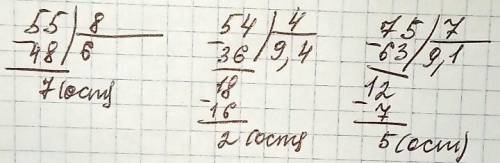 55 | 8
-48 | 6
7 (ост)
54 | 4
-36 | 9,4
18
-16
2 (ост)
75 | 7
-63 | 9,1
12
-7
5 (ост)